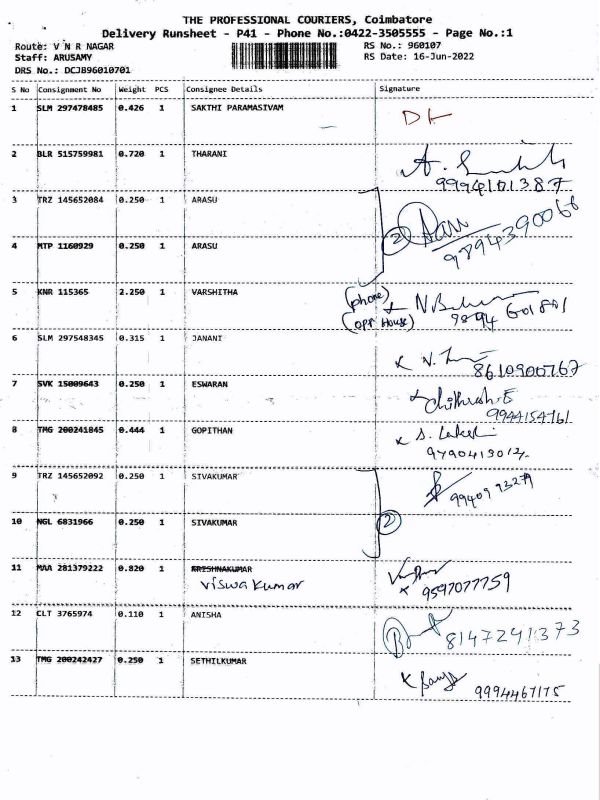 THE PROFESSIONAL COURIERS, Coimbatore
Delivery Runsheet - P41 - Phone No.:0422-3505555 - Page No.:1
Route: V N R NAGAR RS No.: 960107
Staff: ARUSAMY RS Date: 16-Jun-2022
DRS No.: DCJB96010701
S No Consignment No Weight PCS Consignee Details Signature
1 SLM 297478485 0.426 1 SAKTHI PARAMASIVAM
2 BLR 515759981 0.720 1 THARANI
9994101387
3 TRZ 145652084 0.250 1 ARASU
4 MTP 1160929 0.250 1 ARASU
2
9894390066
5 KNR 115365 2.250 1 VARSHITHA (phone)
(opp House) 9894 601801
6 SLM 297548345 0.315 1 JANANI
8610900767
7 SVK 15009643 0.250 1 ESWARAN
9944154761
8 TMG 200241845 0.444 1 GOPITHAN
9790413012
9 TRZ 145652092 0.250 1 SIVAKUMAR
9940993279
10 NGL 6831966 0.250 1 SIVAKUMAR 2
11 MAA 281379222 0.820 1 KRISHNAKUMAR
Viswa Kumar 9597077759
12 CLT 3765974 0.110 1 ANISHA 8147241373
13 TMG 200242427 0.250 1 SETHILKUMAR
9994467175